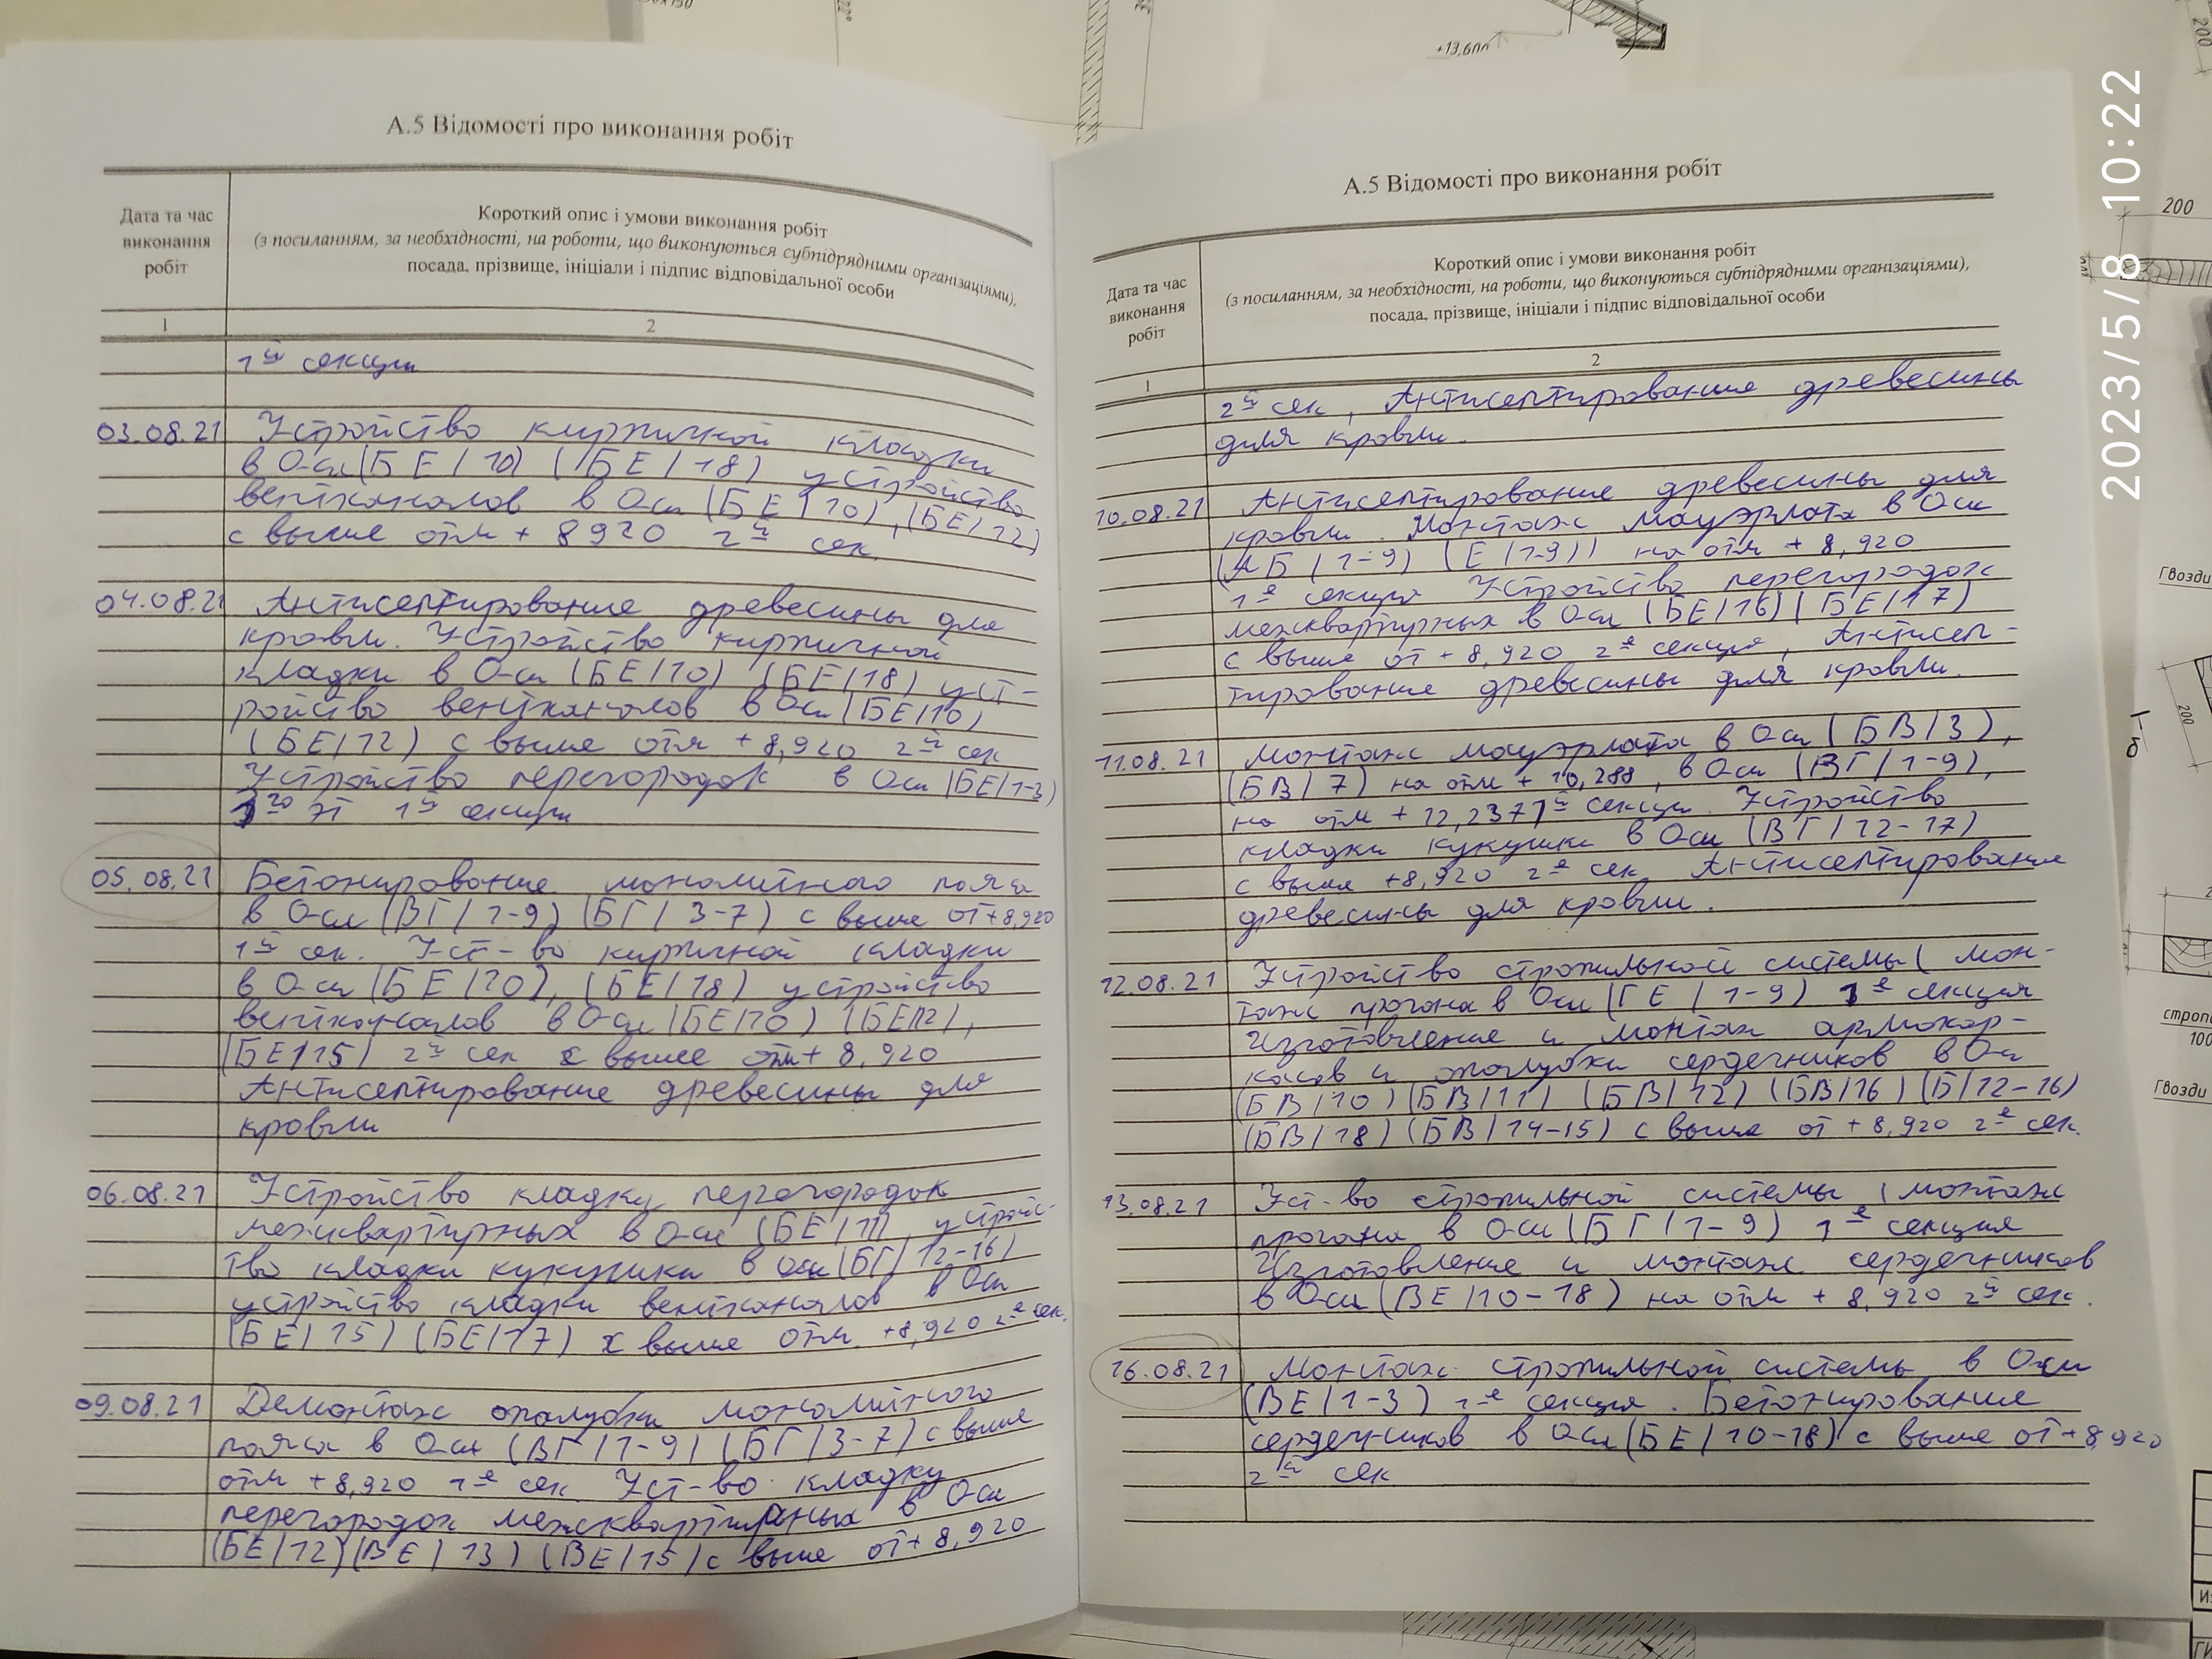 +13,600
2023/5/8 10:22
А.5 Відомості про виконання робіт
Дата та час
виконання
робіт
Короткий опис і умови виконання робіт
(з посиланням, за необхідності, на роботи, що виконуються субпідрядними організаціями),
посада, прізвище, ініціали і підпис відповідальної особи
1
2
1й секции
03.08.21 Устройство кирпичной кладки
в Оси (БЕ/10) (БЕ/18) устройство
вентканалов в Оси (БЕ/10), (БЕ/12)
с выше отм + 8920 2й сек.
04.08.21 Антисептирование древесины для
кровли. Устройство кирпичной
кладки в Оси (БЕ/10) (БЕ/18) уст-
ройство вентканалов в Оси (БЕ/10)
(БЕ/12) с выше отм +8,920 2й сек
Устройство перегородок в Оси (БЕ/1-3)
эт 1й секции
05.08.21 Бетонирование монолитного пояса
в Оси (ВГ/1-9) (БГ/3-7) с выше от +8,920
1й сек. Уст-во кирпичной кладки
в Оси (БЕ/10), (БЕ/18) устройство
вентканалов в Оси (БЕ/10) (БЕ/12),
(БЕ/15) 2й сек с выше отм + 8,920
Антисептирование древесины для
кровли
06.08.21 Устройство кладку перегородок
межквартирных в Оси (БЕ/11), устройс-
тво кладки кукушки в оси (БГ/12-16)
устройство кладки вентканалов в Оси
(БЕ/15) (БЕ/17) с выше отм. +8,920 2е сек.
09.08.21 Демонтаж опалубки монолитного
пояса в Оси (ВГ/1-9) (БГ/3-7) с выше
отм +8,920 1е сек. Уст-во кладку
перегородок межквартирных в Оси
(БЕ/12) (ВЕ/13) (ВЕ/15) с выше от + 8,920
А.5 Відомості про виконання робіт
Дата та час
виконання
робіт
Короткий опис і умови виконання робіт
(з посиланням, за необхідності, на роботи, що виконуються субпідрядними організаціями),
посада, прізвище, ініціали і підпис відповідальної особи
1
2
2й сек, Антисептирование древесины
для кровли.
10.08.21 Антисептирование древесины для
кровли. Монтаж мауэрлата в Оси
(АБ/1-9) (Е/1-9)) на отм + 8,920
1е секция Устройство перегородок
межквартирных в Оси (БЕ/16) (БЕ/17)
с выше от + 8,920 2е секция, Антисеп-
тирование древесины для кровли.
11.08.21 Монтаж мауэрлата в Оси (БВ/3),
(БВ/7) на отм + 10,288, в Оси (ВГ/1-9),
на отм + 12,237 1й секции. Устройство
кладки кукушки в Оси (ВГ/12-17)
с выше +8,920 2е сек Антисептирование
древесины для кровли.
12.08.21 Устройство стропильной системы (мон-
таж прогона в Оси (ГЕ/1-9) 1е секция
Изготовление и монтаж армокар-
касов и опалубки сердечников в Оси
(БВ/10) (БВ/11) (БВ/12) (БВ/16) (Б/12-16)
(БВ/18) (БВ/14-15) с выше от + 8,920 2е сек.
13.08.21 Уст-во стропильной системы (монтаж
прогона в Оси (БГ/1-9) 1е секция
Изготовление и монтаж сердечников
в Оси (ВЕ/10-18) на отм + 8,920 2й сек.
16.08.21 Монтаж стропильной системы в Оси
(ВЕ/1-3) 1е секция. Бетонирование
сердечников в Оси (БЕ/10-18) с выше от +8,920
2й сек
200
Гвозди
200
100
Гвозди